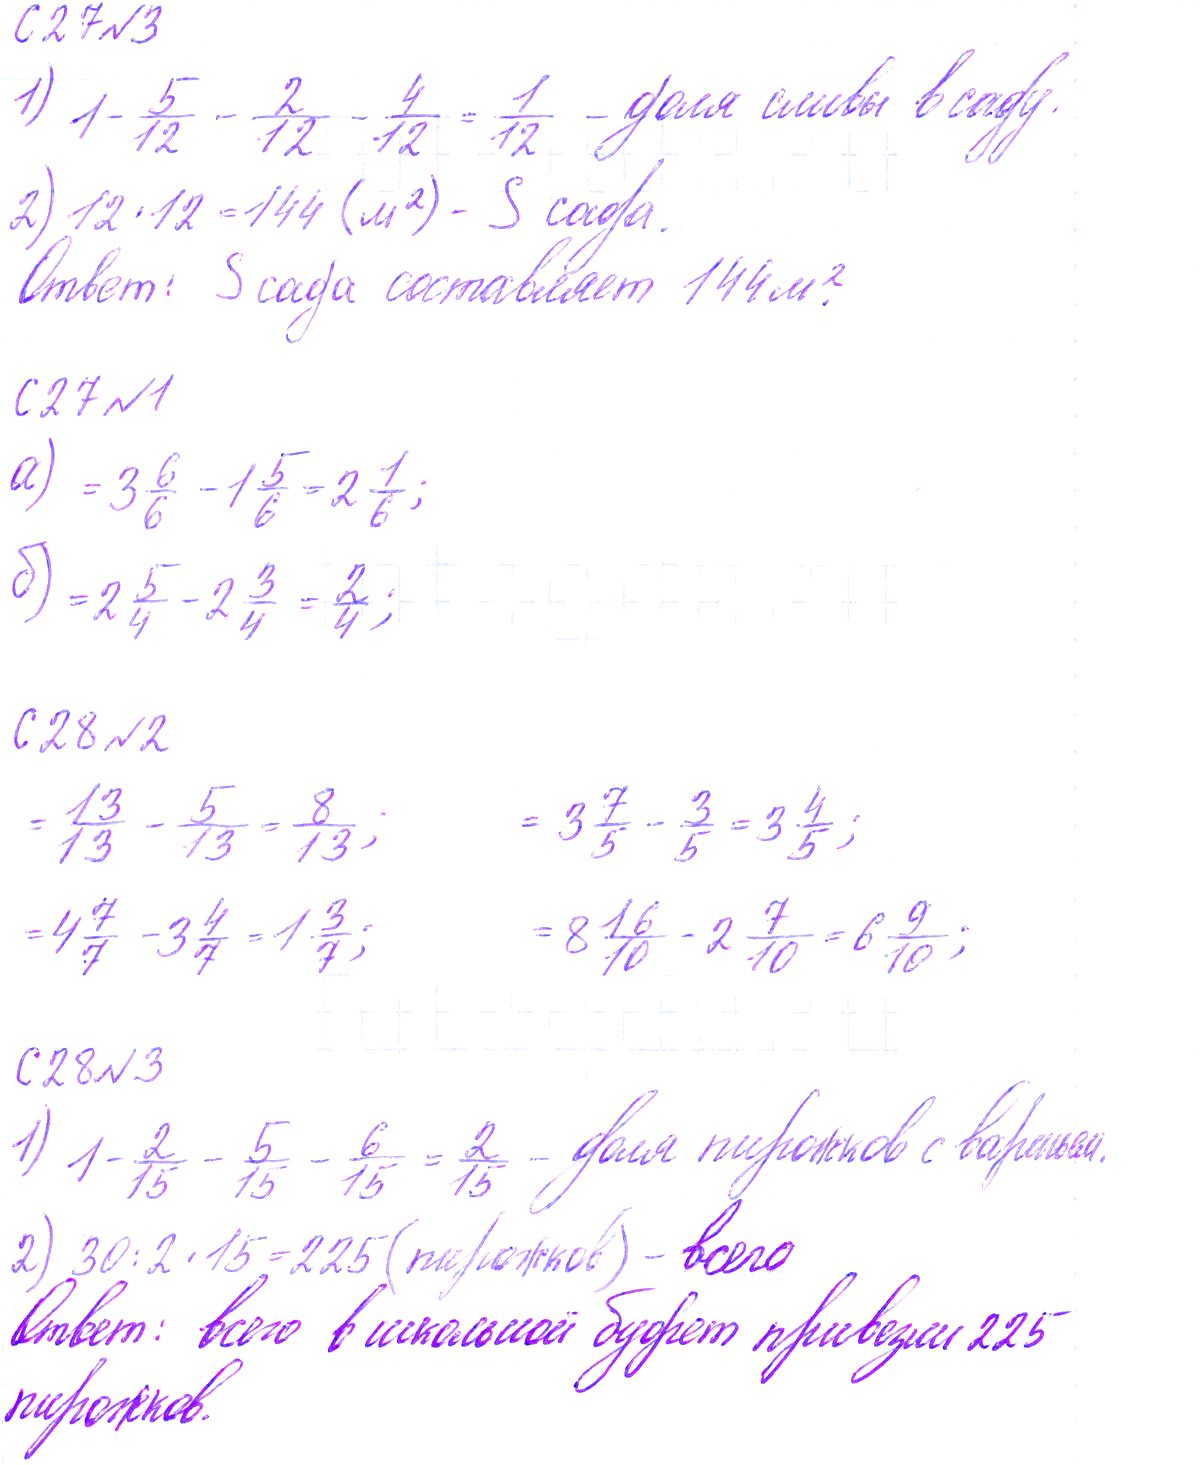 С27№3
1) 1 - 5/12 - 2/12 - 4/12 = 1/12 - доля сливы в саду.
2) 12·12=144 (м²) - S сада.
Ответ: S сада составляет 144м².
С27№1
а) = 3 6/6 - 1 5/6 = 2 1/6;
б) = 2 5/4 - 2 3/4 = 2/4;
С28№2
= 13/13 - 5/13 = 8/13; = 3 7/5 - 3/5 = 3 4/5;
= 4 7/7 - 3 4/7 = 1 3/7; = 8 16/10 - 2 7/10 = 6 9/10;
С28№3
1) 1 - 2/15 - 5/15 - 6/15 = 2/15 - доля пирожков с вареньем.
2) 30:2·15=225 (пирожков) - всего
Ответ: всего в школьной буфет привезли 225
пирожков.